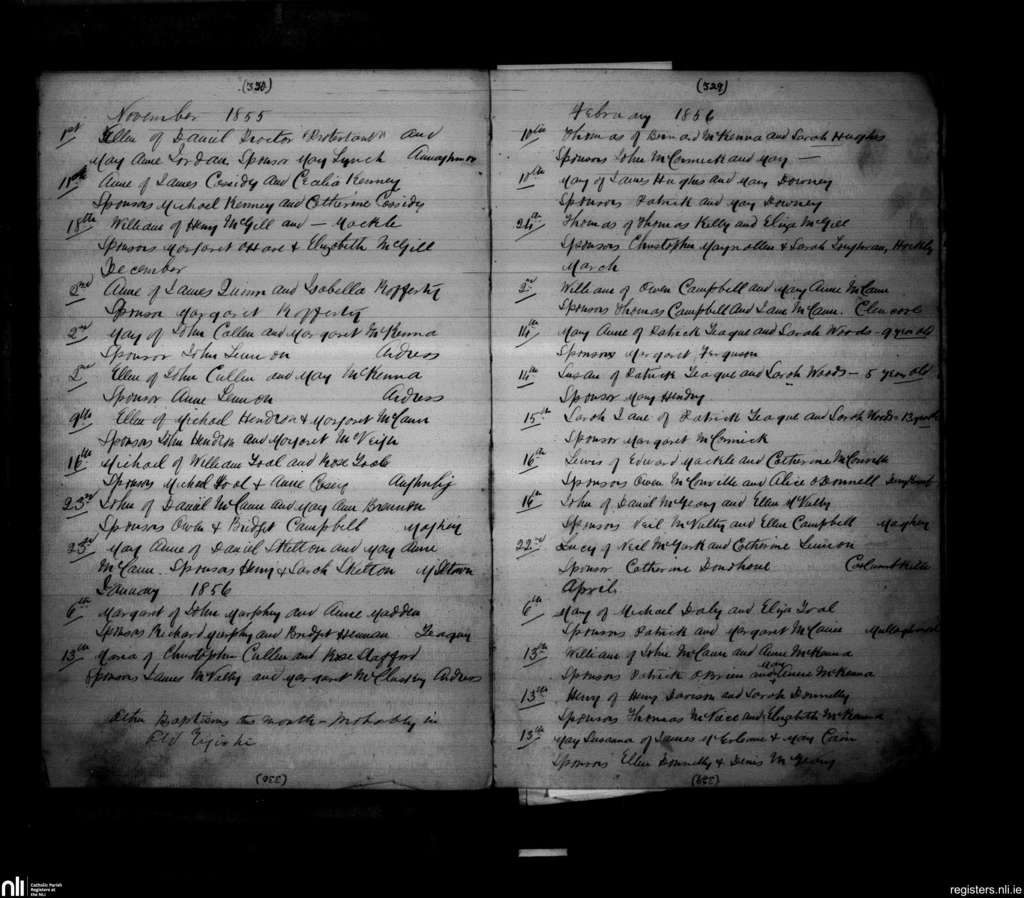 (330)
November 1855
1st Ellen of Daniel Proctor "Protestant" and
May Anne Jordan Sponsor May Lynch
18th Anne of James Cassidy and Cecilia Kenney
Sponsors Michael Kenney and Catherine Cassidy
18th William of Henry McGill and — Mackle
Sponsors Margaret O'Hare & Elizabeth McGill
December
2nd Anne of James Quinn and Isabella Rafferty
Sponsor Margaret Rafferty
2nd May of John Cullen and Margaret McKenna
Sponsor John Lennon Ardress
2nd Ellen of John Cullen and May McKenna
Sponsor Anne Lennon Ardress
9th Ellen of Michael Hendron & Margaret McCann
Sponsors John Hendron and Margaret McVeigh
16th Michael of William Toal and Rose Toole
Sponsors Michael Tool & Anne Casey
23rd John of Daniel McCann and May Ann
Sponsors Owen & Bridget Campbell
23rd May Anne of Daniel Skelton and May Anne
McCann. Sponsors Henry & Sarah Skelton
January 1856
6th Margaret of John Murphy and Anne Madden
Sponsors Richard Murphy and Bridget Heenan Teaguy
13th Maria of Christopher Cullen and Rose Stafford
Sponsors James McNally and Margaret McCluskey Ardress
Other Baptisms this month probably in
Old
(330)
(329)
February 1856
10th Thomas of Bernard McKenna and Sarah Hughes
Sponsors John McCormick and May —
10th May of James Hughes and May Downey
Sponsors Patrick and May Downey
24th Thomas of Thomas Kelly and Eliza McGill
Sponsors Christopher & Sarah Loughran,
March
2nd William of Owen Campbell and May Anne McCann
Sponsors Thomas Campbell and Jane McCann. Clencore
14th May Anne of Patrick Teague and Sarah Woods - 9 year old
Sponsors Margaret Ferguson
14th Susan of Patrick Teague and Sarah Woods - 5 year old
Sponsor May Hendry
15th Sarah Jane of Patrick Teague and Sarah Woods
Sponsor Margaret McCormick
16th Lewis of Edward Mackle and Catherine McConville
Sponsors Owen McConville and Alice O'Donnell
16th John of Daniel McGeary and Ellen McNally
Sponsors Neil McNally and Ellen Campbell
22nd Lucy of Neil McGurk and Catherine Lennon
Sponsor Catherine Donohoe Columbkille
April
6th May of Michael Daly and Eliza Toal
Sponsors Patrick and Margaret
13th William of John McCann and Anne McKenna
Sponsors Patrick O'Brien and McKenna
13th Henry of Henry Davison and Sarah Donnelly
Sponsors Thomas and Elizabeth McKenna
13th May Susanna of James & May
Sponsors Ellen Donnelly & Denis McGeary
(329)
nli
Catholic Parish
Registers at
the NLI
registers.nli.ie